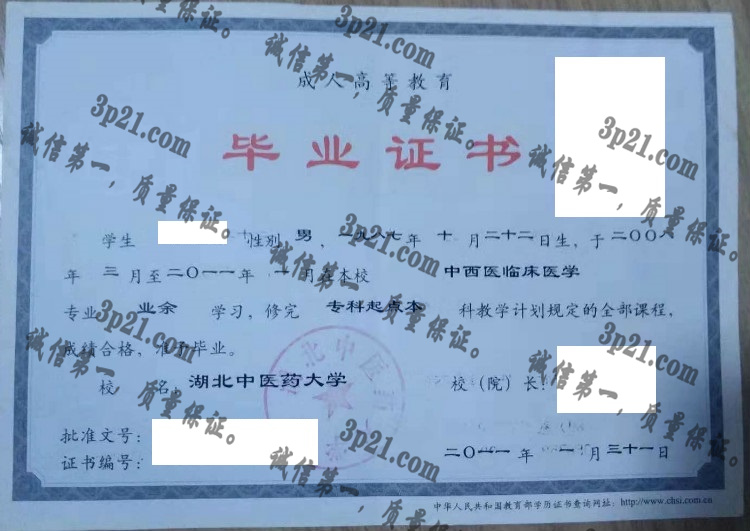 成人高等教育
毕业证书
学生 性别 男，一九八七年 十 月二十二日生，于二〇〇八
年 三 月至二〇一一年 一 月在本校 中西医临床医学
专业 业余 学习，修完 专科起点本 科教学计划规定的全部课程，
成绩合格，准予毕业。
校 名：湖北中医药大学 校（院）长：
批准文号：
证书编号： 二〇一一年 一 月 三十一日
中华人民共和国教育部学历证书查询网址：http://www.chsi.com.cn
3p21.com
诚信第一，质量保证。
3p21.com
诚信第一，质量保证。
3p21.com
诚信第一，质量保证。
3p21.com
诚信第一，质量保证。
3p21.com
诚信第一，质量保证。
3p21.com
诚信第一，质量保证。
3p21.com
诚信第一，质量保证。